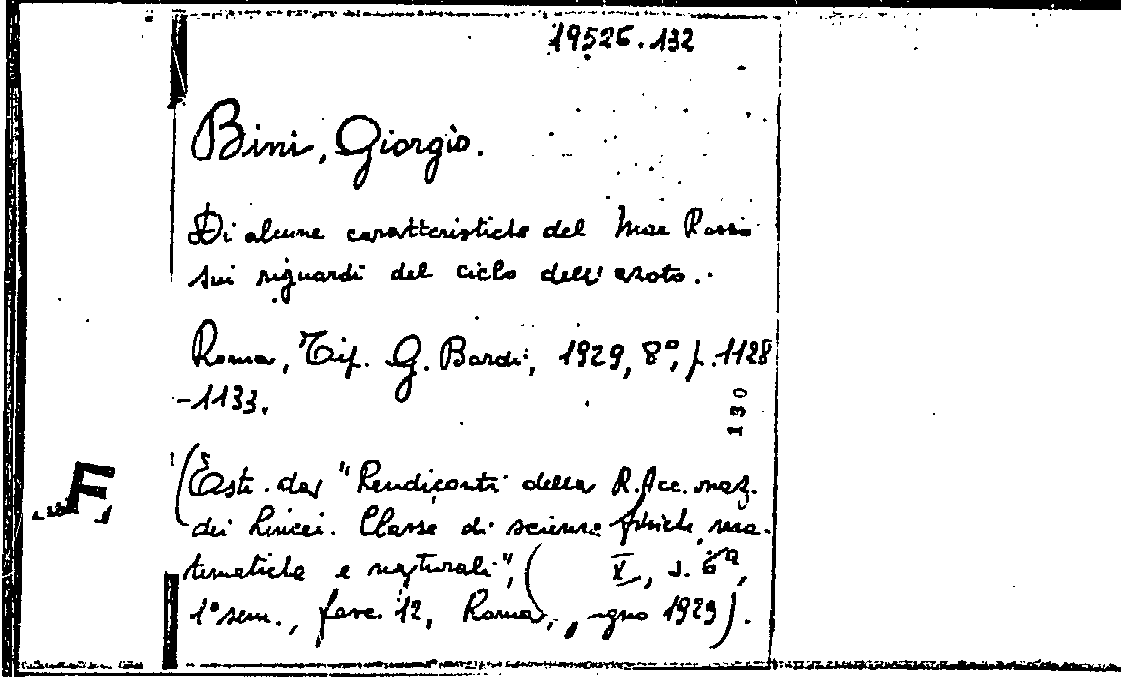 19526.132
Bini, Giorgio.
Di alcune caratteristiche del Mar Rosso
sui riguardi del ciclo dell'azoto.
Roma, Tip. G. Bardi, 1929, 8°, p. 1128
-1133.
130
(Estr. dai "Rendiconti della R. Acc. naz.
F
dei Lincei. Classe di scienze fisiche, ma-
tematiche e naturali", ( X, s. 6a,
1° sem., fasc. 12, Roma, ugno 1929).